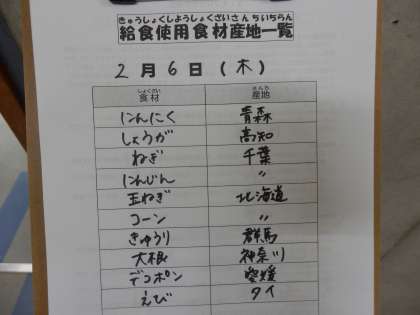 きゅうしょくしようしょくざいさんちいちらん
給食使用食材産地一覧
2月6日(木)
しょくざい さんち
食材 産地
にんにく 青森
しょうが 高知
ねぎ 千葉
にんじん 〃
玉ねぎ 北海道
コーン 〃
きゅうり 群馬
大根 神奈川
デコポン 愛媛
えび タイ